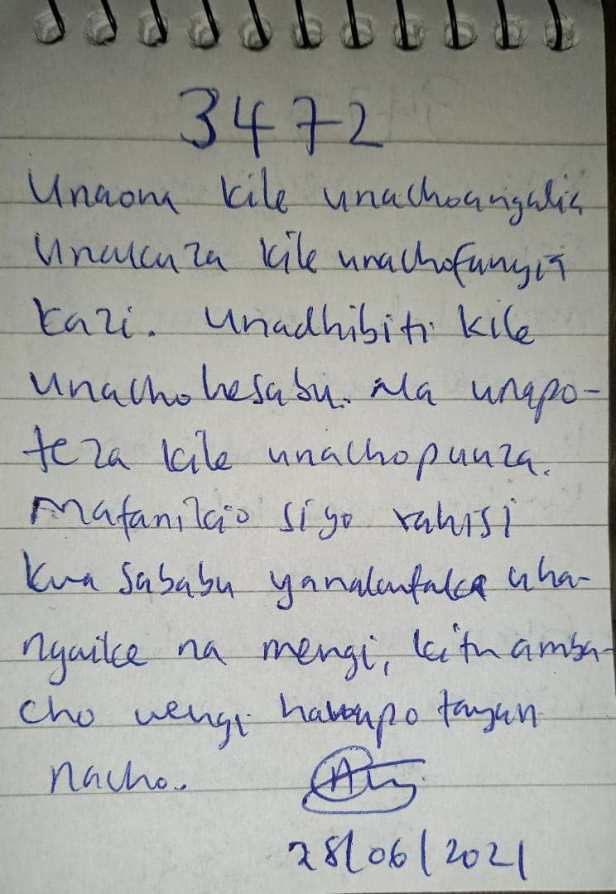 3472
Unaona kile unachoangalia
Unakuza kile unachofanyia
kazi. Unadhibiti kile
unachohesabu. Na unapo-
teza kile unachopuuza.
Mafanikio siyo rahisi
kwa sababu yanakutaka uha-
ngaike na mengi, kitu amba-
cho wengi hawapo tayari
nacho.
28/06/2021